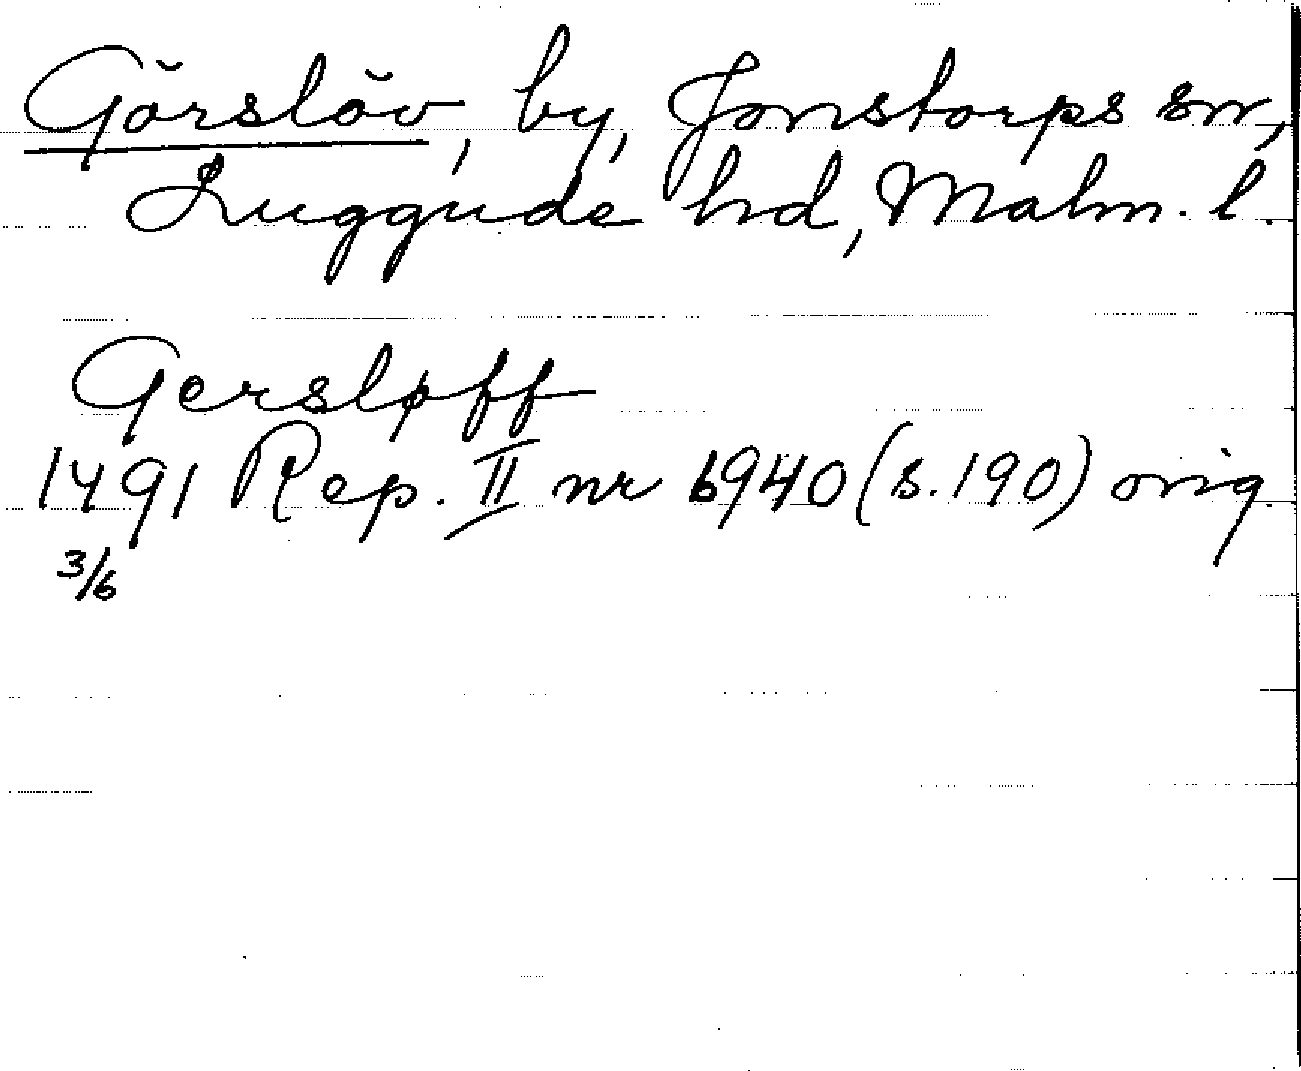 Görslöv, by, Jonstorps sn,
Luggude hd, Malm. l.
Gersløff
1491 Rep. II nr 6940 (s. 190) orig
3/6